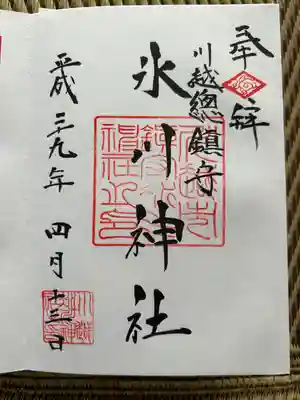 奉拝
川越總鎮守
氷川神社
平成二十九年 四月十三日